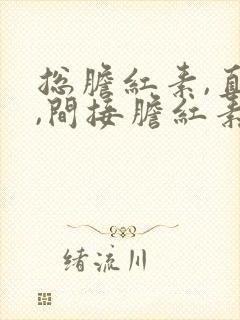 总膽紅素,直
,間接膽紅素
绪流川